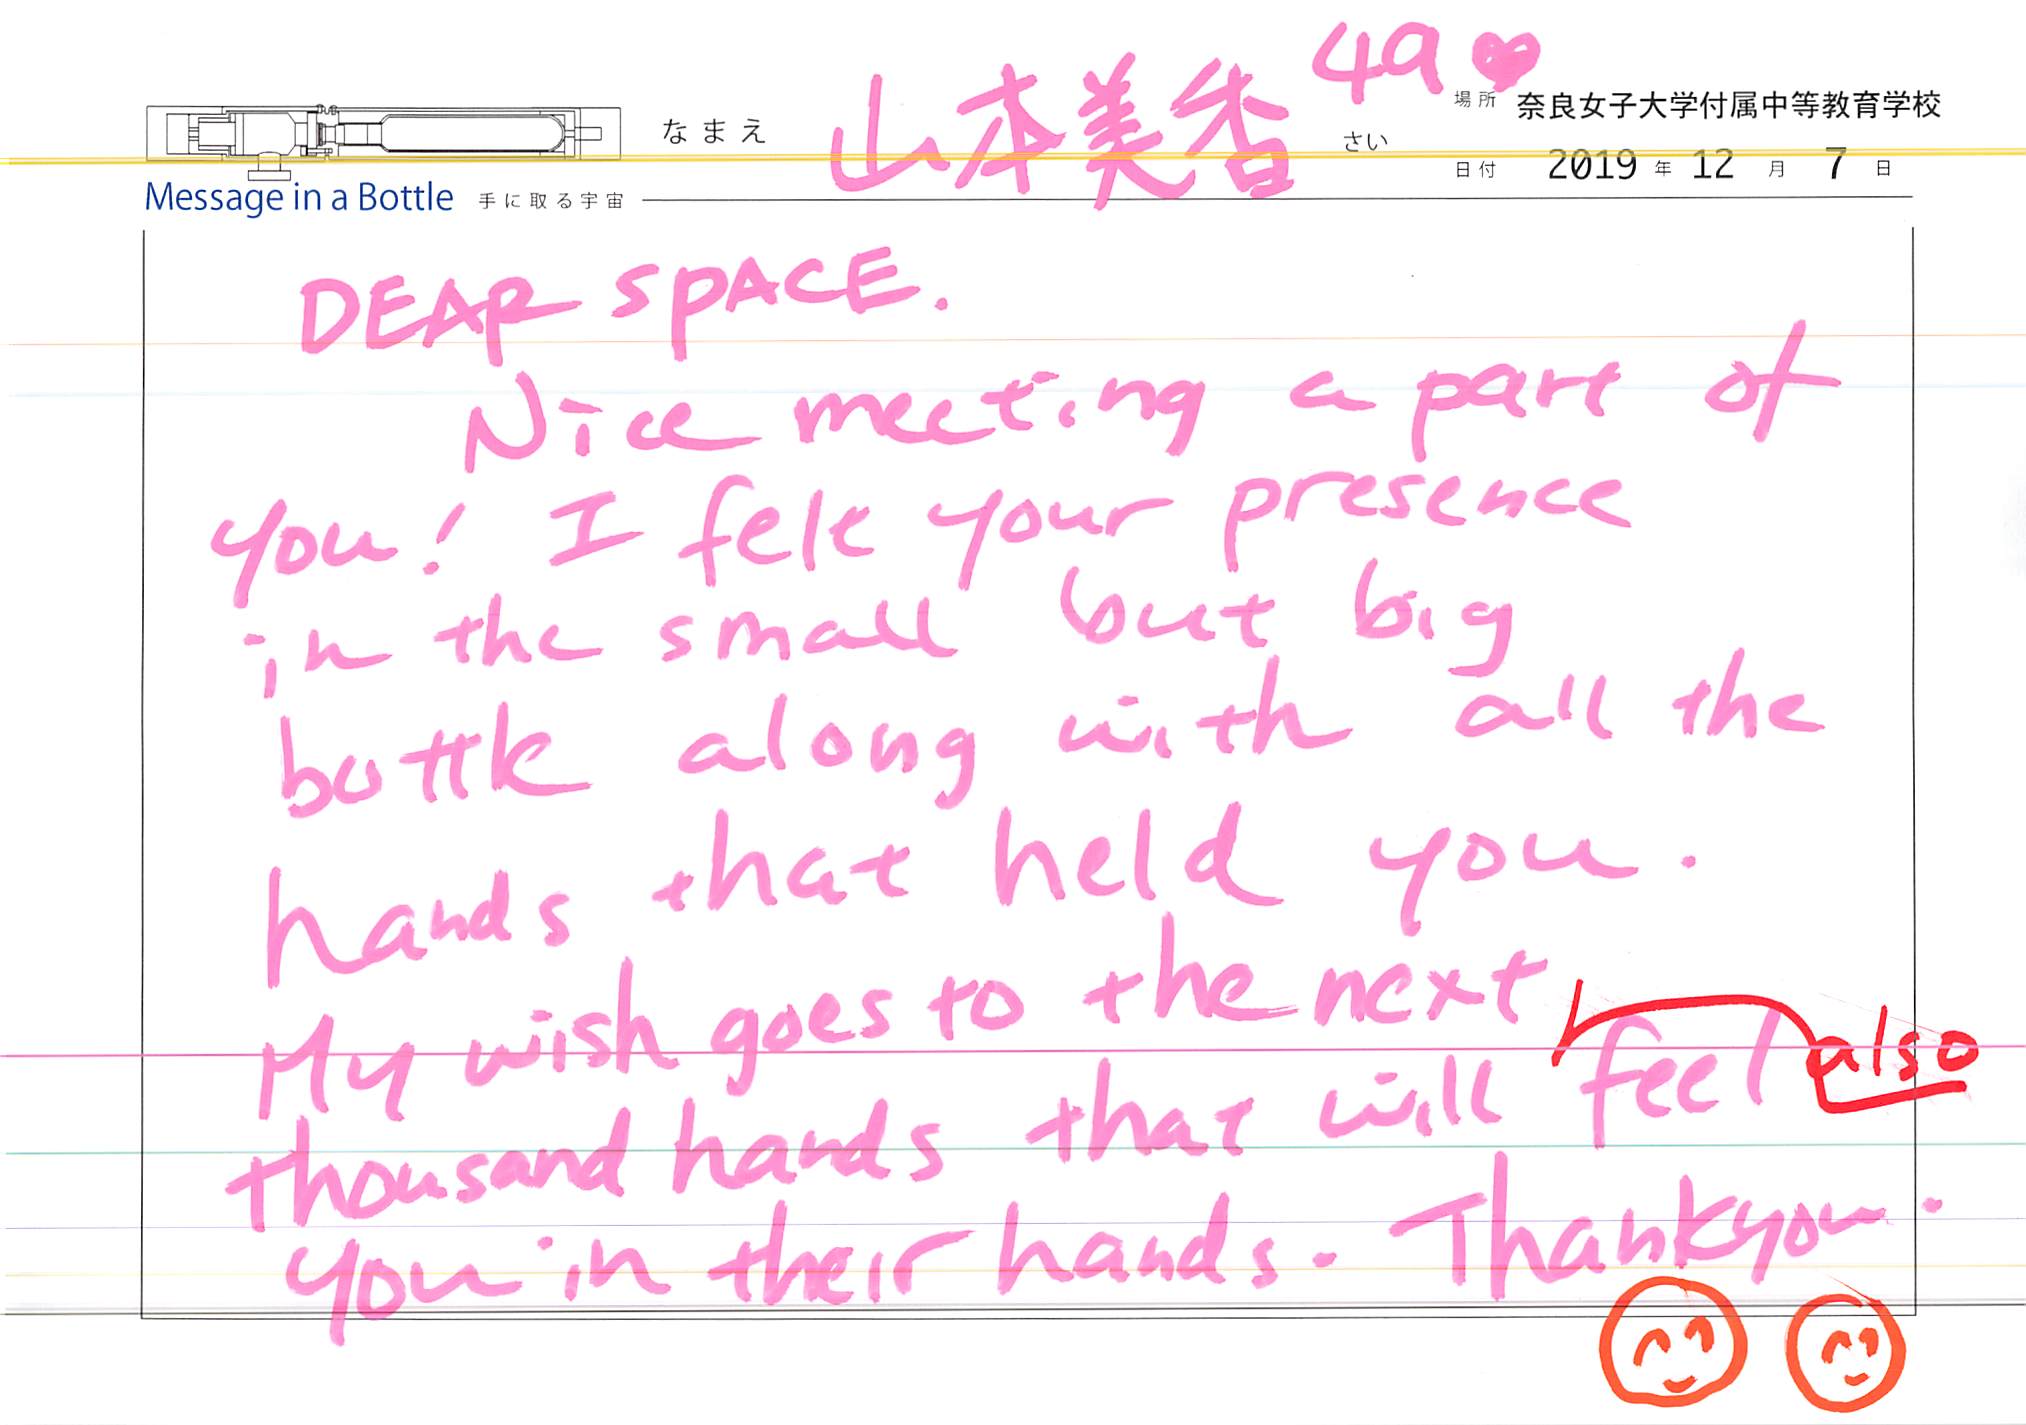 なまえ 山本美香 49 さい
場所 奈良女子大学付属中等教育学校
日付 2019 年 12 月 7 日
Message in a Bottle 手に取る宇宙
DEAR SPACE.
Nice meeting a part of
you! I felt your presence
in the small but big
bottle along with all the
hands that held you.
My wish goes to the next
thousand hands that will feel also
you in their hands. Thankyou.